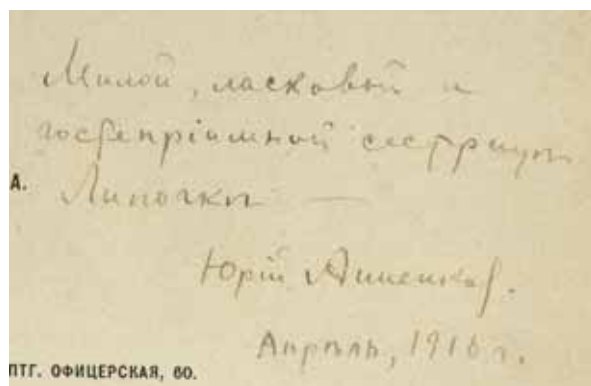 Милой, ласковой и
гостепріимной сестрицѣ
А.
Линочкѣ —
Юрій Анненков.
Апрѣль, 1916 г.
ПТГ. ОФИЦЕРСКАЯ, 60.